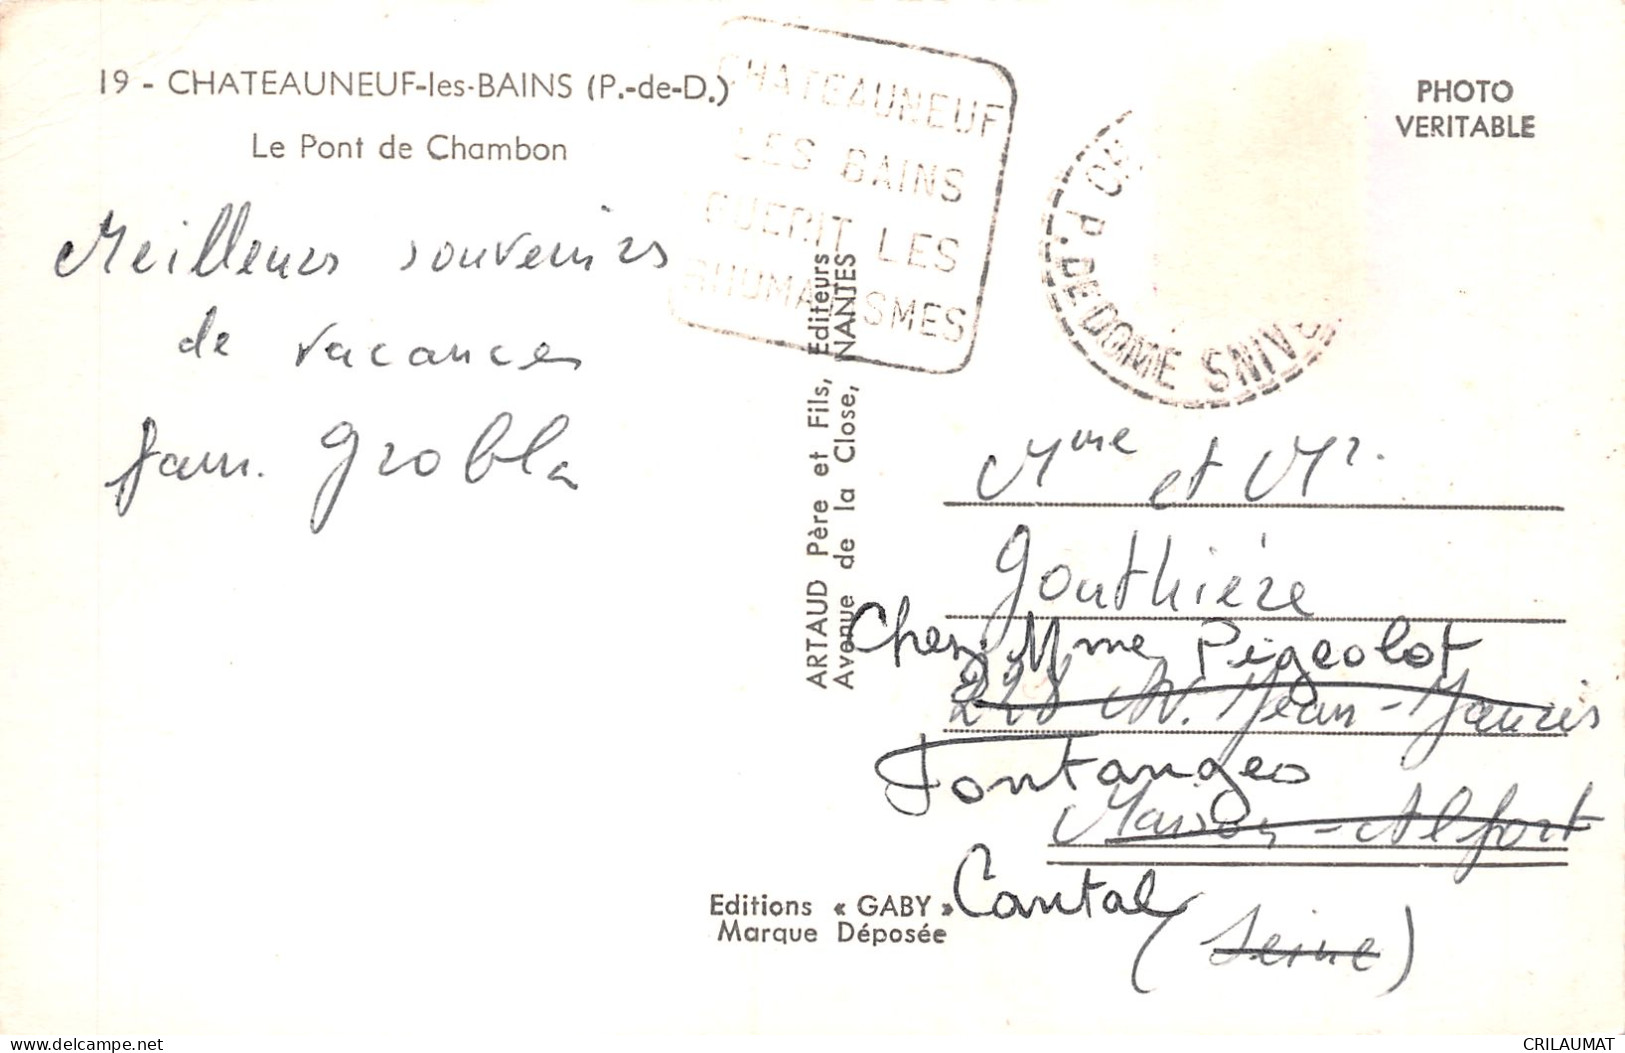 19 - CHATEAUNEUF-les-BAINS (P.-de-D.)
Le Pont de Chambon
CHATEAUNEUF
LES BAINS
GUERIT LES
RHUMATISMES
P. DE DOME
BAINS
PHOTO
VERITABLE
Meilleurs souvenirs
de vacances
fam. Grobla
ARTAUD Père et Fils, Editeurs
Avenue de la Close, NANTES
Mme et Mr.
Gouthière
Chez Mme Pigeolot
228 Av. Jean-Jaurès
Fontanges
Maison-Alfort
Cantal
(Seine)
Editions « GABY »
Marque Déposée
www.delcampe.net
CRILAUMAT